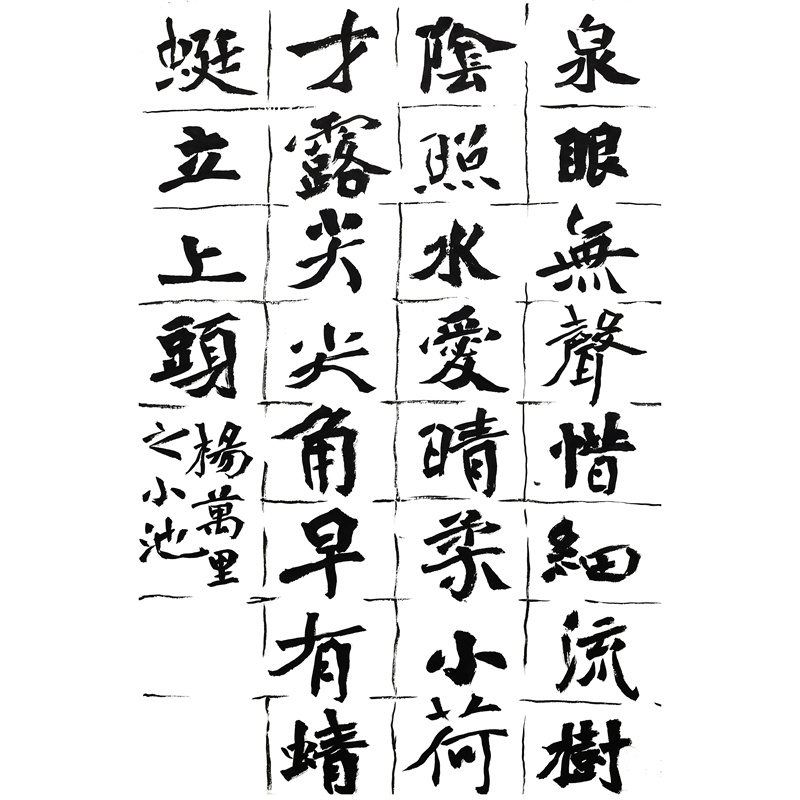 泉眼無聲惜細流樹
陰照水愛晴柔小荷
才露尖尖角早有蜻
蜓立上頭
楊萬里
之小池